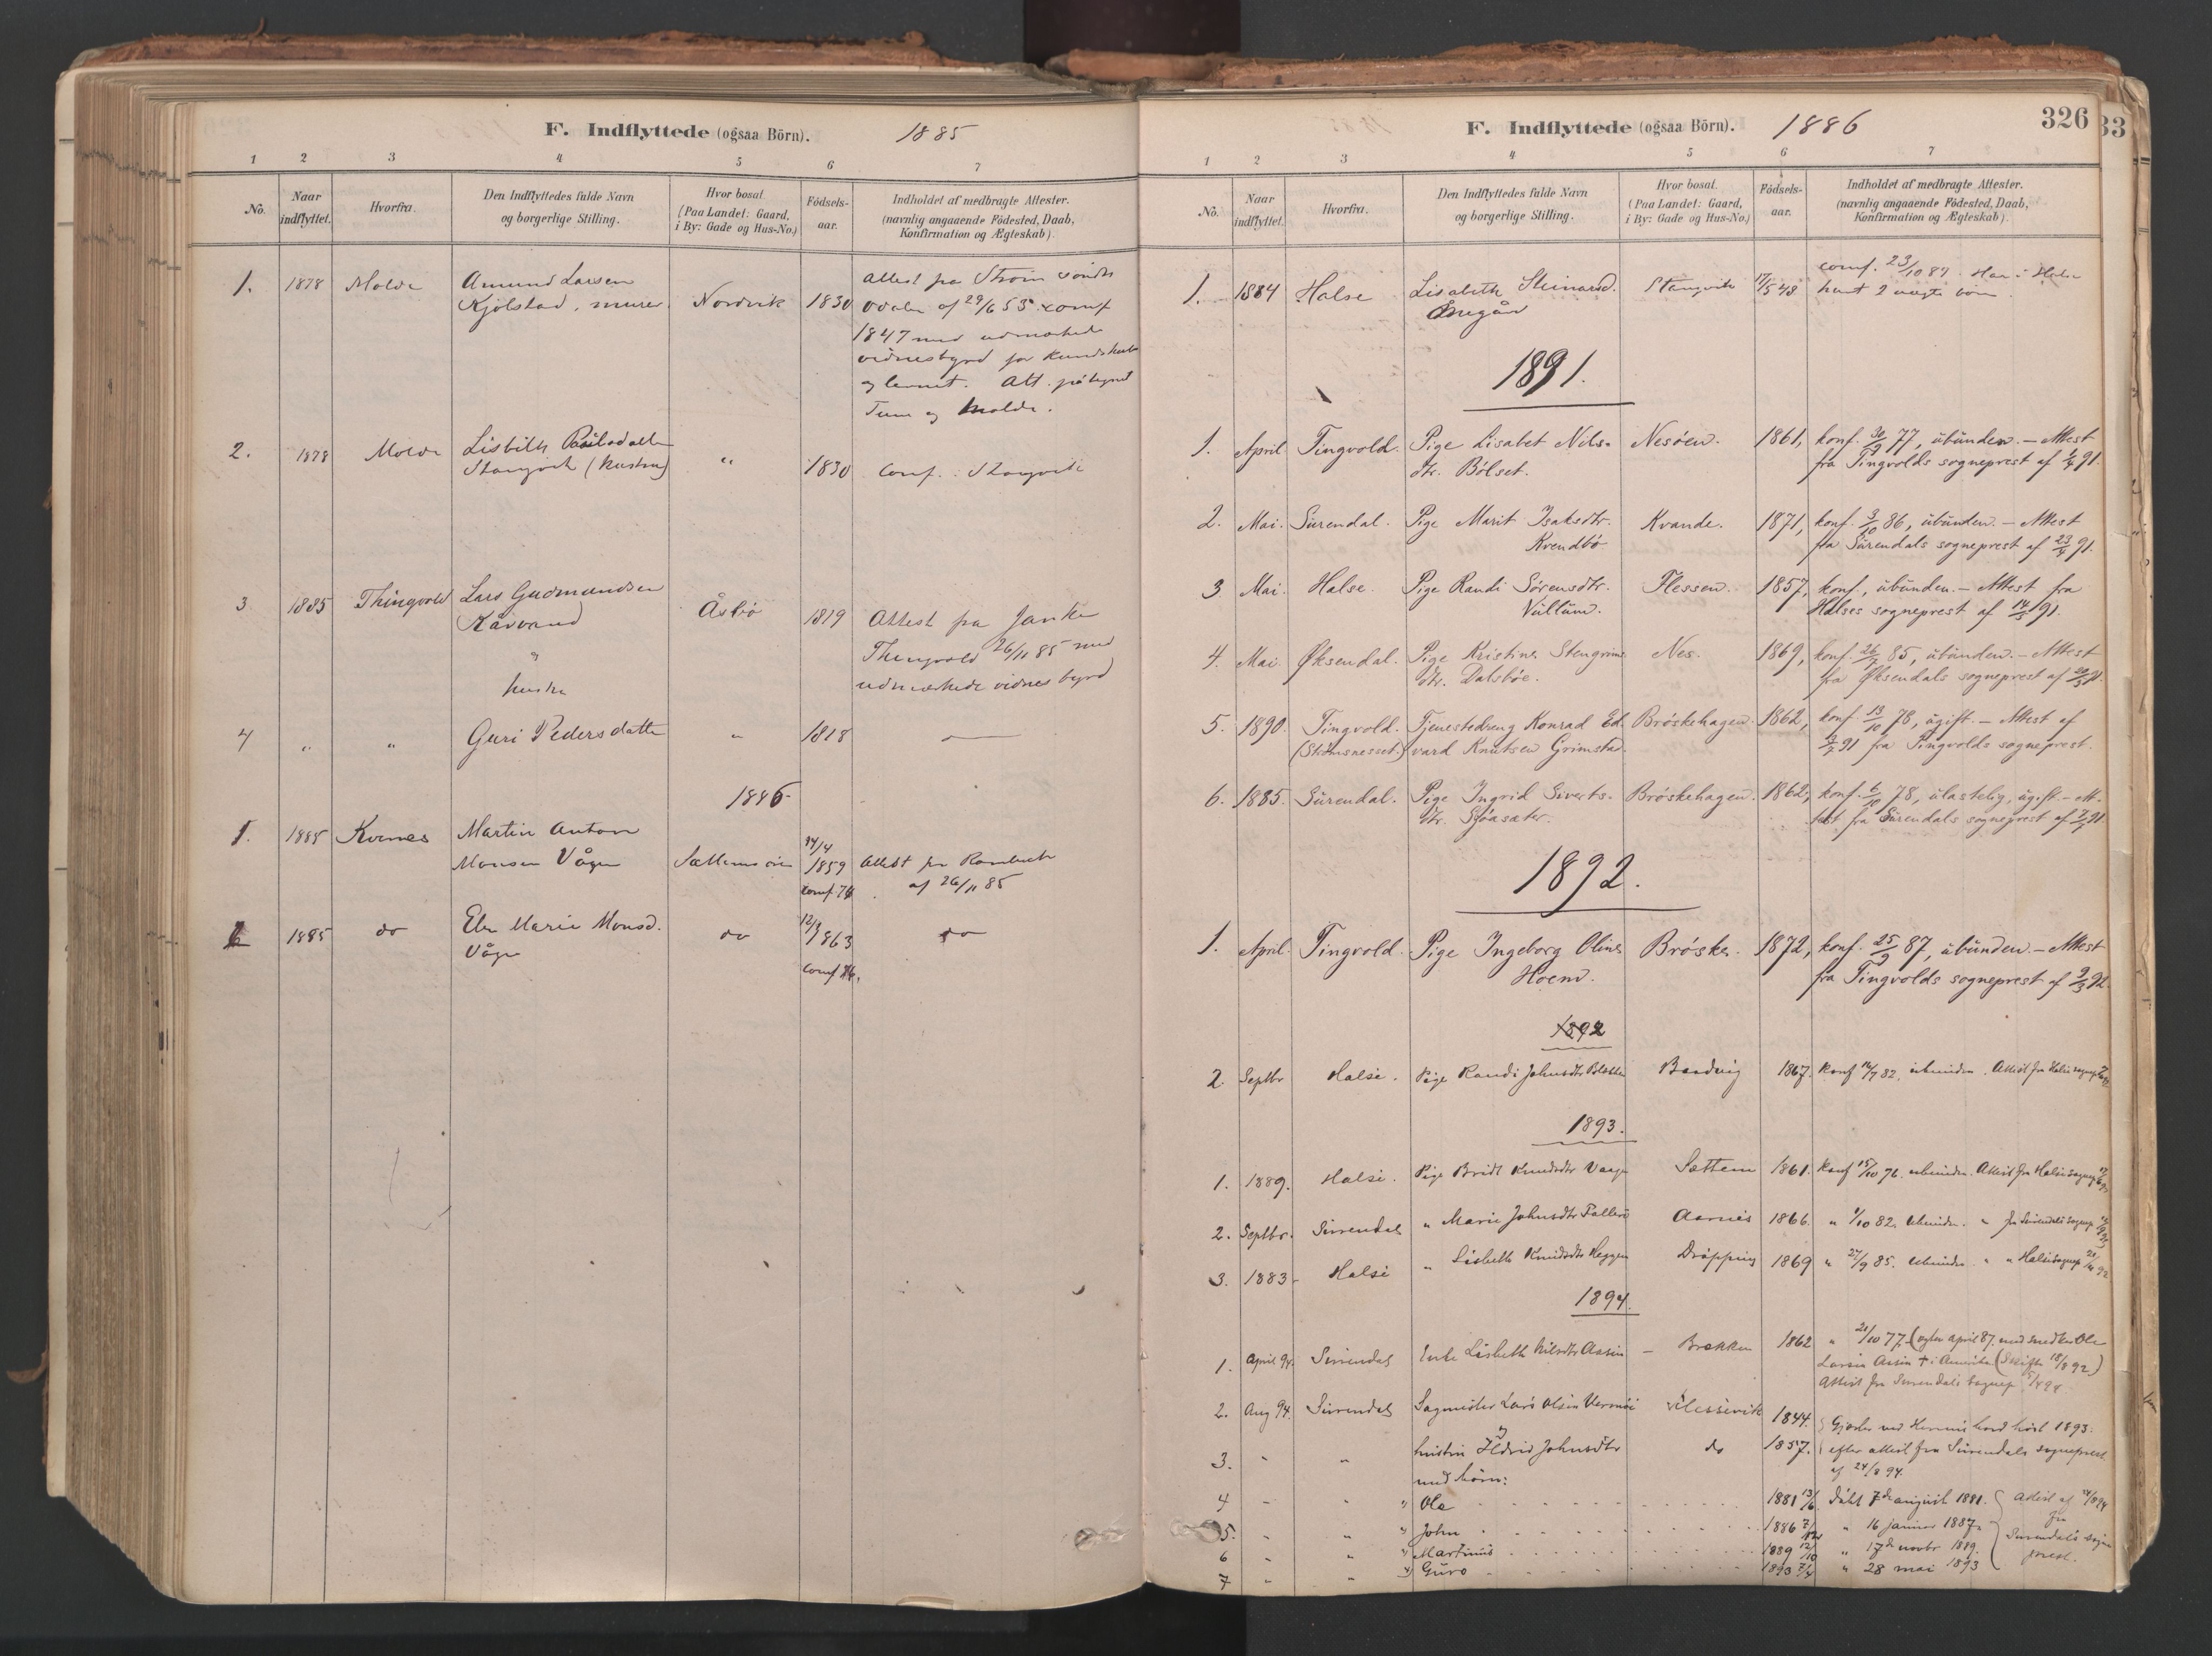 F. Indflyttede (ogsaa Börn). 1885
1 2 3 4 5 6 7
No. Naar indflyttet. Hvorfra. Den Indflyttedes fulde Navn og borgerlige Stilling. Hvor bosat. (Paa Landet: Gaard, i By: Gade og Hus-No.) Födsels-aar. Indholdet af medbragte Attester. (navnlig angaaende Födested, Daab, Konfirmation og Ægteskab).
1. 1878 Molde Amund Larsen Nordvik 1830 Attest fra Strøm söndre
Kjölstad, murer. Odalen af 29/6 55. conf
1847 med udmærkede
vidnesbyrd for Kundskab
og levnet. Att. påtegnet
og Molde.
2. 1878 Molde Lisbeth
Stangvik (hustru) " 1830 Conf. i Stangvik
3. 1885 Thingvold Lars Gudmundsen Åsbö 1819 Attest fra
Kårvand Thingvold 26/11 85 med
og udmærkede vidnesbyrd
hustru
4 " " Guri Pedersdatter " 1818 —
1886
1. 1885 Kvernes Martin Anton 14/4
Monsen Vågen 1859 Attest fra
conf. 74 af 26/11 85
1885 do Marie Monsd. do 12/3 1863 do
Vågen
F. Indflyttede (ogsaa Börn). 1886 326
1 2 3 4 5 6 7
No. Naar indflyttet. Hvorfra. Den Indflyttedes fulde Navn og borgerlige Stilling. Hvor bosat. (Paa Landet: Gaard, i By: Gade og Hus-No.) Födsels-aar. Indholdet af medbragte Attester. (navnlig angaaende Födested, Daab, Konfirmation og Ægteskab).
1. 1884 Halse Lisabeth Steinarsd. Stangvik 17/5 48 conf. Har i Halse
havt 2 uægte börn.
1891.
1. April Tingvold. Pige Lisabet Nils- Nesöen. 1861, konf. 30/9 77, ubunden. – Attest
dtr. Bölset. fra Tingvolds sogneprest af 91.
2. Mai. Surendal. Pige Marit Isaksdtr. Kvande. 1871, konf. 3/10 86, ubunden. – Attest
Kvendbö fra Surendals sogneprest af 23/4 91.
3 Mai. Halse. Pige Randi Sörensdtr. Flessen. 1857, konf., ubunden. – Attest fra
Vullum. Halses sogneprest af 14/5 91.
4. Mai. Øksendal. Pige Kristine Stengrims- Nes. 1869, konf. 85, ubunden. – Attest
dtr. Dalsböe. fra Øksendals sogneprest af
5. 1890. Tingvold. Tjenestedreng Konrad Ed- Bröskehagen. 1862, konf. 13/10 78, ugift. – Attest af
(Strömsnesset.) vard Knutsen Grimstad. 91 fra Tingvolds sogneprest.
6. 1885. Surendal. Pige Ingrid Siverts- Bröskehagen. 1862, konf. 6/10 78, ulastelig, ugift. – At-
dtr. Sjöasæter. test fra Surendals sogneprest af 91.
1892.
1. April. Tingvold. Pige Ingeborg Oline Bröske. 1872, konf. 25/9 87, ubunden. – Attest
Hoem. fra Tingvolds sogneprest af 9/3 92.
1892
2. Septbr Halse. Pige Randi Johnsdtr Bardvig 1867. Konf 82. ubunden. Attest fra Halse sognep
1893.
1. 1889. Halse. Pige Bridt Knudsdtr Vaage Sættem 1861. Konf 15/10 76. ubunden. Attest fra Halse sognep
2. Septbr. Surendal " Marie Johnsdtr Aarnes 1866. " 1/10 82. Ubunden. " fra Surendals sognep
3. 1883 Halse " Lisbeth Knudsdtr Heggem Dröpping 1869 " 27/9 85. Ubunden. " " Halse sognep
1894.
1. April 94. Surendal Enke Lisbeth Nilsdtr Aasen – Brøkken 1862 " 21/10 77. (egtev. april 87. med Ole
Larsen Aasen † i Amerika (Skifte 18/8 92)
Attest fra Surendals sognep.
2. Aug 94. Surendal Sagmester Lars Olsen 1844. Herrens bord höst 1893.
og
3. " " hustru Ildrid Johnsdtr do 1857. efter attest fra Surendals sogneprest
med börn: af 24/8 94.
4 – " " Ole 1881 13/6 döbt 7de august 1881. Attest af 24/8 94
5. – " " John 1886 " 16 januar 1887. fra
6 – " " Martinus 1889 12/10 " 17de novbr 1889. Surendals sogne
7 – " " Guro 1893 7/4 " 28 mai 1893 prest.